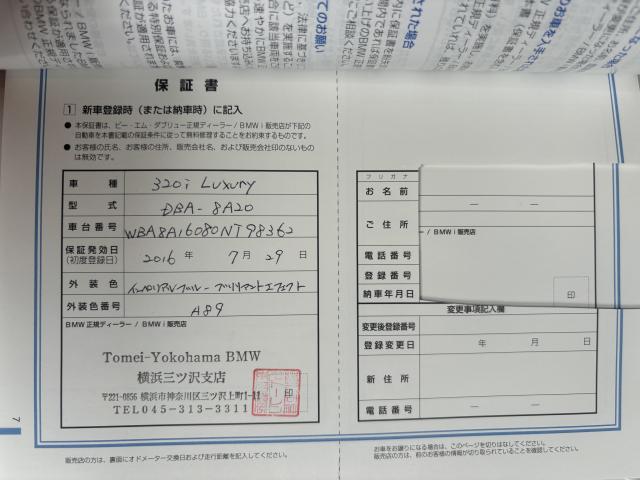 保証書
1 新車登録時（または納車時）に記入
● 本保証書は、ビー・エム・ダブリュー正規ディーラー / BMW i 販売店が下記の
自動車を本書記載の保証条件に従って無料修理することをお約束するものです。
● お客様の氏名、お客様の住所、販売会社名、および販売会社印のないもの
は無効です。
車種 320i Luxury
型式 DBA-8A20
車台番号 WBA8A16080NT98362
保証発効日
(初度登録日) 2016 年 7 月 29 日
外装色 インペリアルブルー・ブリリアントエフェクト
外装色番号 A89
BMW 正規ディーラー / BMW i 販売店
Tomei-Yokohama BMW
横浜三ツ沢支店
〒221-0856 横浜市神奈川区三ツ沢上町1-11
TEL 045-313-3311
印
フリガナ
お名前
ご住所
電話番号
登録番号
納車年月日
— —
/ BMW i 販売店
印
変更事項記入欄
変更後登録番号
登録変更日 年 月 日
新住所
電話番号 — —
販売店の方は、裏面にオドメーター交換日および走行距離を記入してください。
お車をお譲りになる場合は、このページを切りはなしてください。
販売店の方は、前のお客様の情報が切り取られていることを確認してください。
7